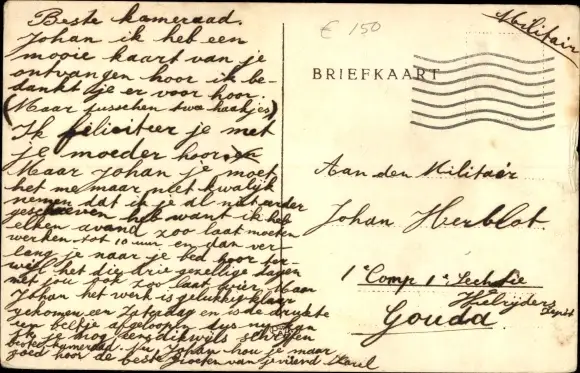 Beste kameraad.
Johan ik heb een
mooie kaart van je
ontvangen hoor ik be-
dankt dje er voor hoor.
(Maar tusschen twee haakjes)
Ik feliciteer je met
je moeder hoor.
Maar Johan je moet
het me maar niet kwalijk
nemen dat ik je al niet eerder
geschreven heb want ik heb
elken avond zoo laat moeten
werken tot 10 uur en dan ver-
lang je naar je bed hoor ter-
wijl het die drie gezellige dagen
met jou ook zoo laat
Johan het werk is gelukkig klaar
gekomen een Zaterdag en is de drukte
een beetje afgeloopen dus nu kan
ik je nog eens dikwijls schrijven
beste kameraad. Nu Johan hou je maar
goed hoor de beste groeten van je vriend Karel
€ 150
Militair
BRIEFKAART
Aan den Militair
Johan Herblot
1e Comp 1e Sechtie
Wielrijders
Depot
Gouda.